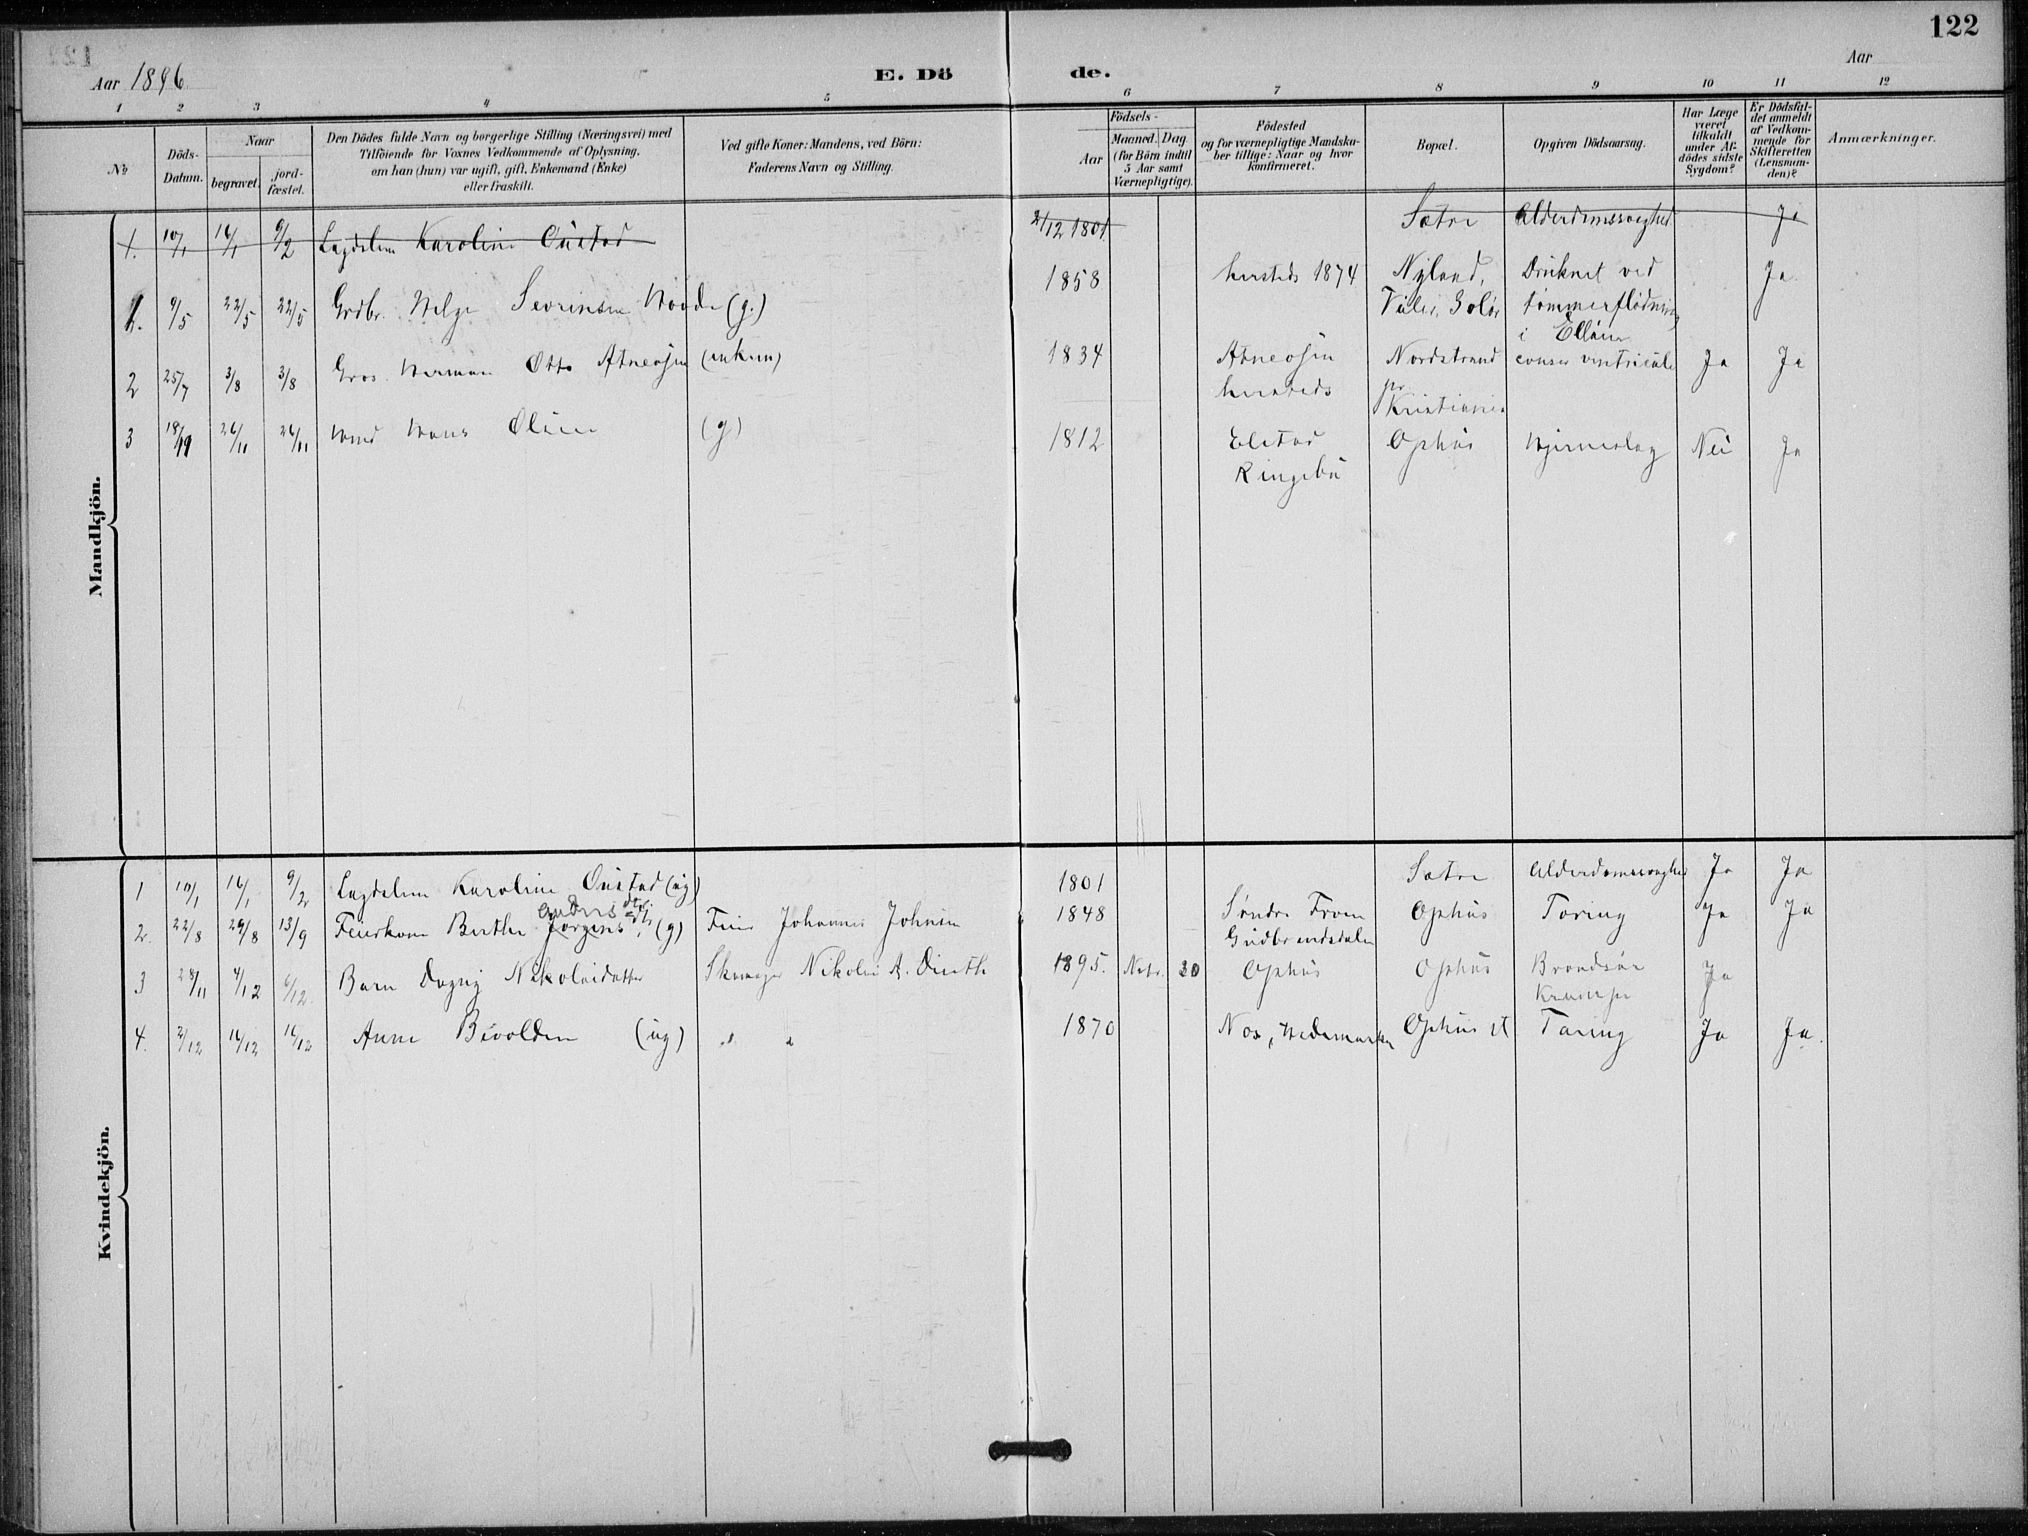 122
Aar 1896
E. Dö de.
Aar
1 2 3 4 5 6 7 8 9 10 11 12
No
Döds-Datum.
Naar
begravet.
jord-fæstet.
Den Dödes fulde Navn og borgerlige Stilling (Næringsvei) med
Tilföiende for Voxnes Vedkommende af Oplysning,
om han (hun) var ugift, gift, Enkemand (Enke)
eller fraskilt.
Ved gifte Koner: Mandens, ved Börn:
Faderens Navn og Stilling.
Födsels-
Aar
Maaned. Dag.
(for Börn indtil
5 Aar samt
Værnepligtige).
Födested
og for værnepligtige Mandska-
ber tillige: Naar og hvor
konfirmeret.
Bopæl.
Opgiven Dödsaarsag.
Har Læge
været
tilkaldt
under Af-
dödes sidste
Sygdom?
Er Dödsfal-
det anmeldt
af Vedkom-
mende for
Skifteretten
(Lensman-
den)?
Anmærkninger.
Mandkjön.
1. 10/1 16/1 9/2 Lægdslem Karoline Oustad 2/12 1801 Sætre Alderdomssvaghed Ja
1. 9/5 22/5 22/5 Grdbr. Helge Sevrinsen (g.) 1858 hersteds 1874 Nyland, Druknet ved Ja
Våler, Solør tømmerflødning
i
2 25/7 3/8 3/8 Gros. Herman Otto Atneosen (enkem) 1834 Atneosen Nordstrand cancer ventriculi Ja Ja
hersteds pr Kristiania
3 18/11 26/11 26/11 Hans (g) 1812 Elstad Ophus Hjerneslag Nei Ja
Ringebu
Kvindekjön.
1 10/1 16/1 9/2 Lægdslem Karoline Oustad (ug) 1801 Sætre Alderdomssvaghed Ja Ja
Andris dtr
2. 22/8 29/8 13/9 Feierkone Berthe Jørgens dtr. (g) Feier Johannes Johnsen 1848 Søndre Fron Ophus Tæring Ja Ja
Gudbrandsdalen
3 28/11 4/12 6/12 Barn Dagny Nikolaidatter Skomager Nikolai A. 1895. Novbr. 30 Ophus Ophus Brandsår Ja
Kramper
4. 2/12 16/12 16/12 Anne Bevolden (ug) " " 1870 Næs, Hedemarken Ophus st Tæring Ja Ja.